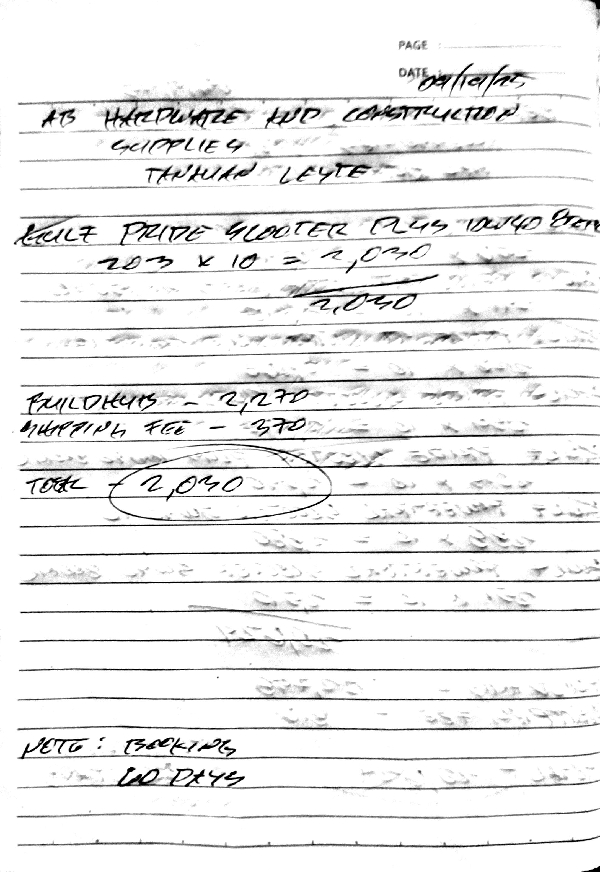 PAGE :
DATE : 09/19/25
AB HARDWARE AND CONSTRUCTION
SUPPLIES
TANAUAN LEYTE
GULF PRIDE SCOOTER PLUS 10W40
203 x 10 = 2,030
2,030
BUILDHUB - 2,270
SHIPPING FEE - 370
TOTAL - 2,030
NOTE : BOOKING
60 DAYS